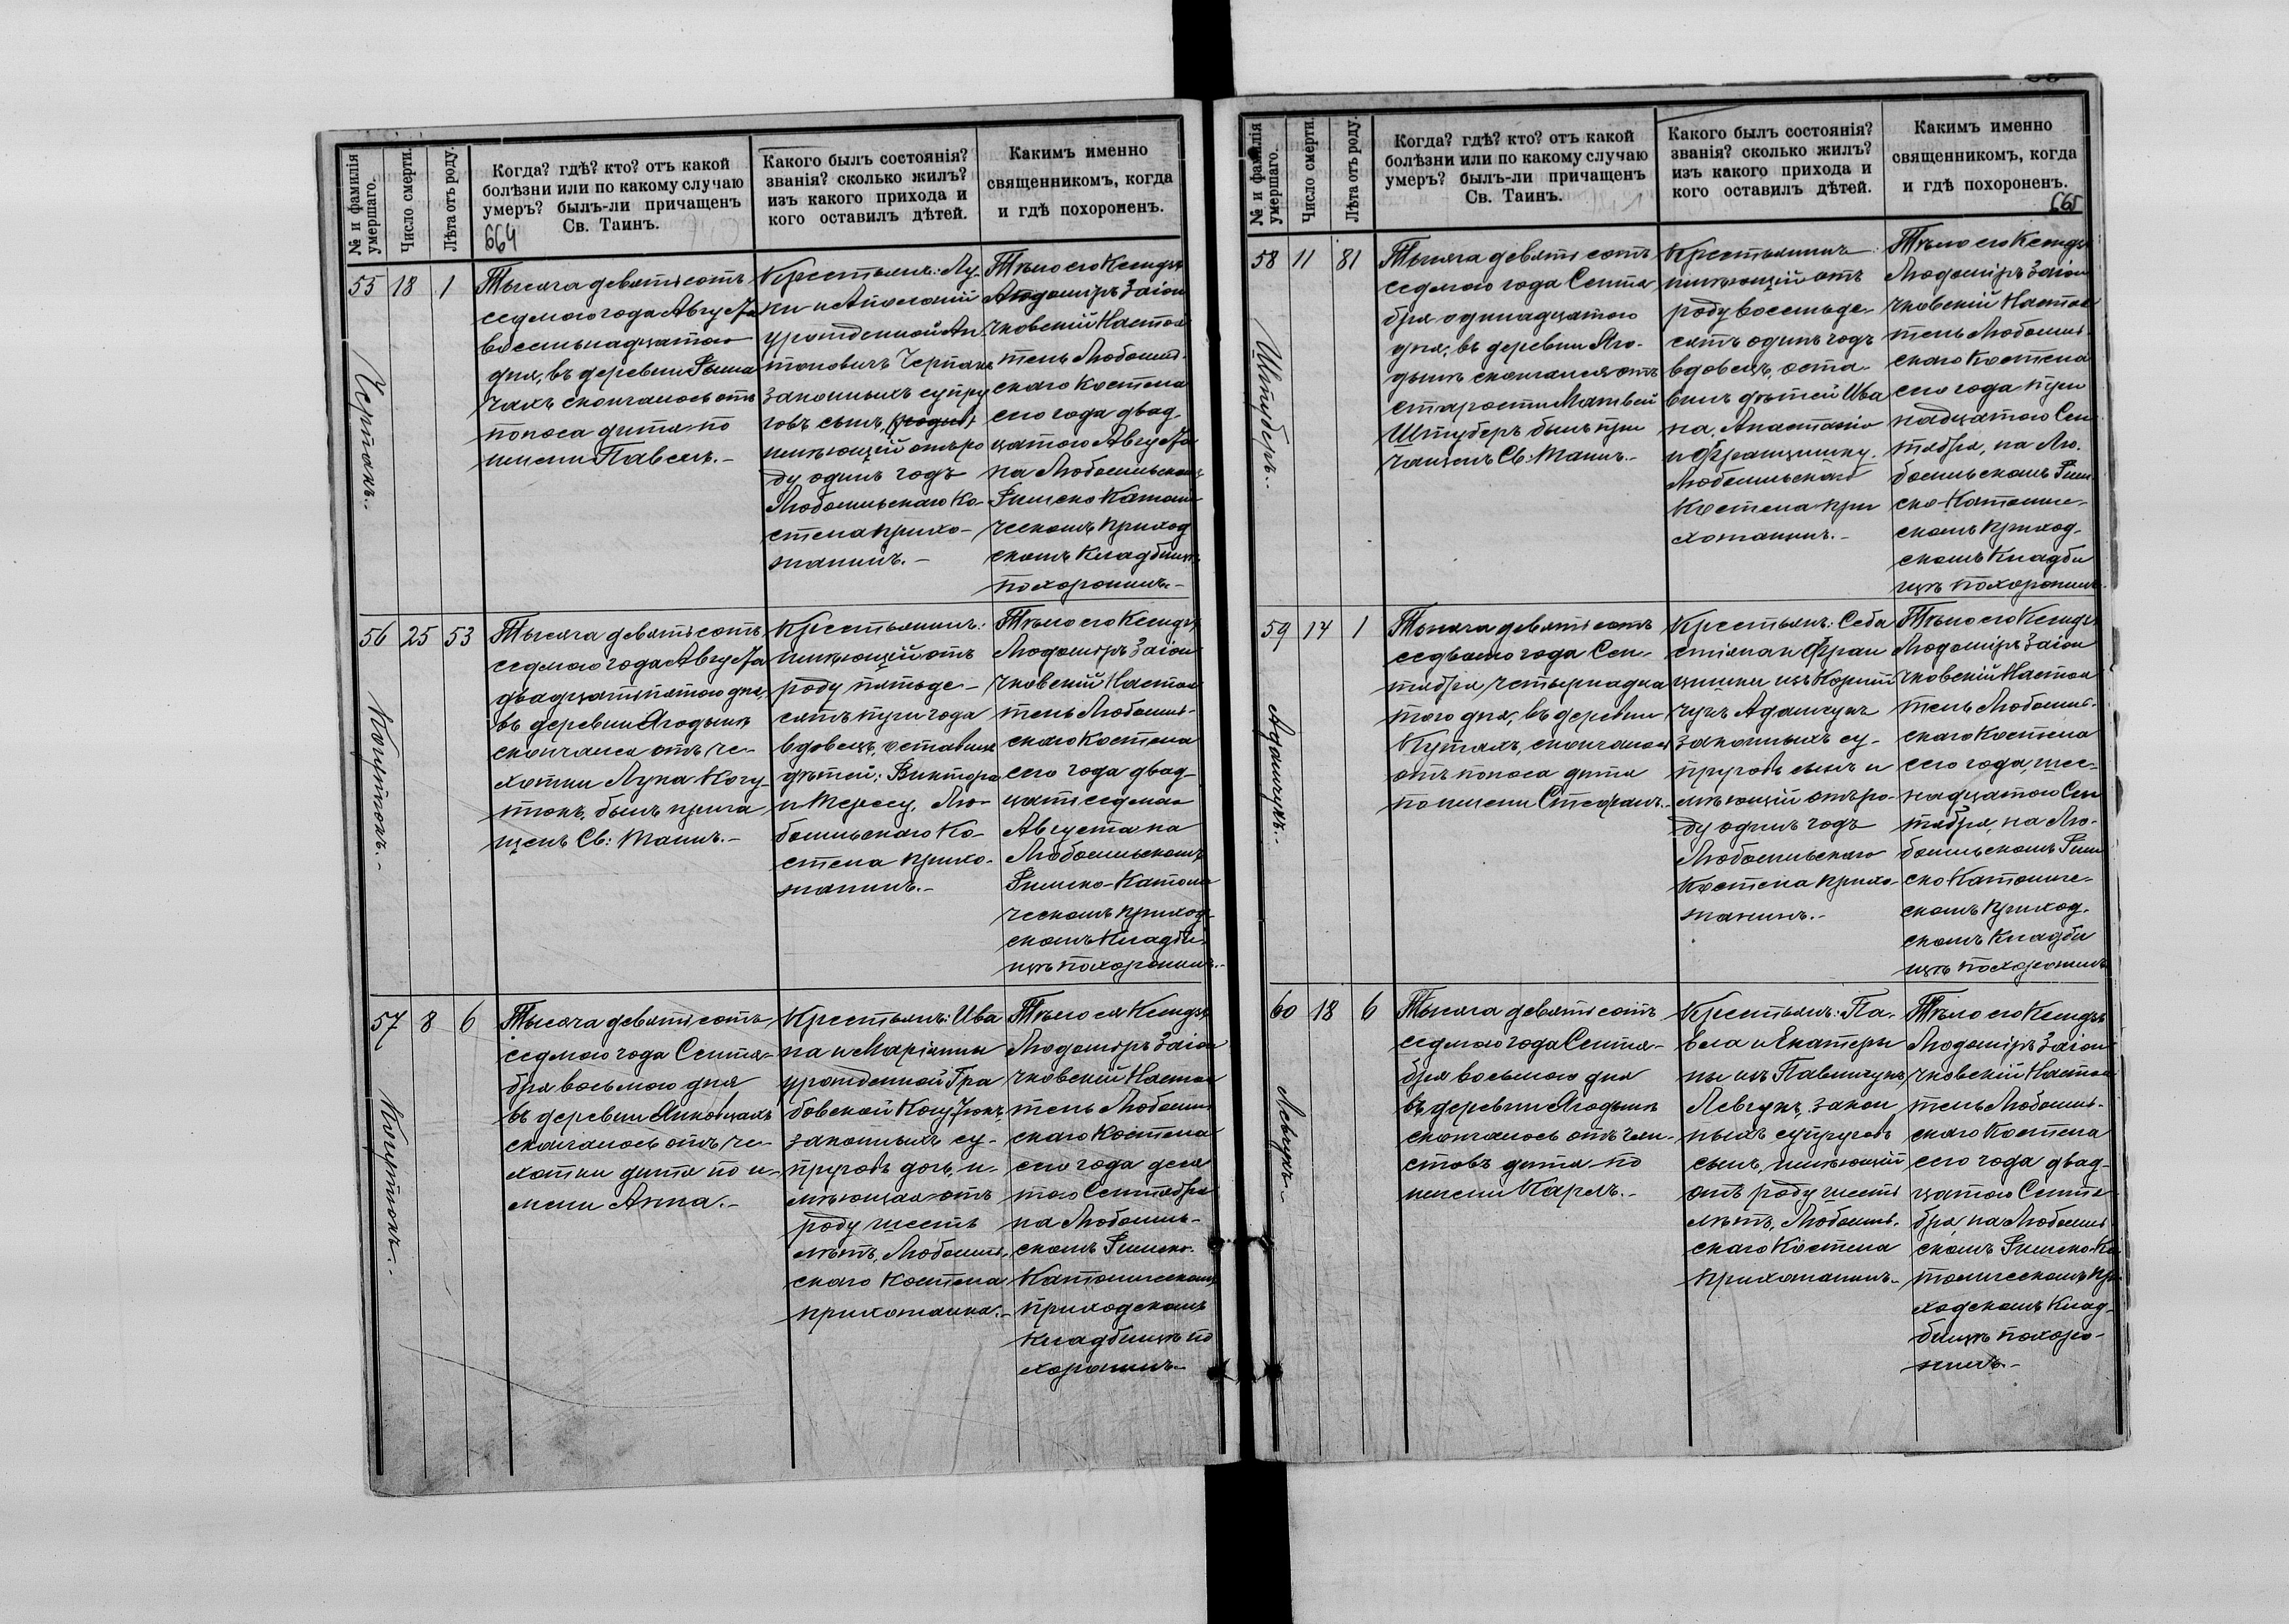 № и фамилія
умершаго.
Число смерти.
Лѣта отъ роду.
Когда? гдѣ? кто? отъ какой
болѣзни или по какому случаю
умеръ? былъ-ли причащенъ
Св. Таинъ.
664
Какого былъ состоянія?
званія? сколько жилъ?
изъ какого прихода и
кого оставилъ дѣтей.
Какимъ именно
священникомъ, когда
и гдѣ похороненъ.
55
Черпакъ.
18
1
Тысяча девятьсотъ
седмого года Августа
восемьнадцатого
дня, въ деревни Рыма
чахъ скончалось отъ
поноса дитя по
имени Павелъ.-
Крестьянъ: Лу-
ки и Аполоніи
урожденной Ан
тоновичъ Черпакъ
законныхъ супру
говъ сынъ,
имѣющій отъ ро
ду одинъ годъ
Любомльскаго Ко-
стела прихо-
жанинъ.-
Тѣло его Ксендзъ
Людоміръ Загон
чковскій Настоя
тель Любомль-
скаго Костела
сего года двад-
цатого Августа
на Любомльскомъ
Римско Католи
ческомъ приход
скомъ Кладбищѣ
похоронилъ.-
56
Когутюкъ.-
25
53
Тысяча девятьсотъ
седмого года Августа
двадцатьпятого дня,
въ деревни Ягодынѣ
скончался отъ че-
хотки Лука Когу
тюкъ, былъ прича
щенъ Св: Таинъ.-
Крестьянинъ:
имѣющій отъ
роду пятьде-
сятъ три года
вдовецъ, оставилъ
дѣтей: Виктора
и Тересу, Лю-
бомльскаго Ко-
стела прихо-
жанинъ.-
Тѣло его Ксендзъ
Людоміръ Загон
чковскій Настоя
тель Любомль-
скаго Костела
сего года двад-
цать седмого
Августа на
Любомльскомъ
Римско-Католи
ческомъ приход
скомъ Кладби-
щѣ похоронилъ.-
57
Когутюкъ.-
8
6
Тысяча девятьсотъ
седмого года Сентя-
бря восьмого дня
въ деревни Янковцахъ
скончалось отъ че-
хотки дитя по и-
мени Анна.-
Крестьянъ: Ива
на и Маріанны
урожденной Гра
бовской Когутюкъ,
законныхъ су-
пруговъ дочь, и-
мѣющая отъ
роду шесть
лѣтъ, Любомль-
скаго Костела
прихожанка.-
Тѣло ея Ксендзъ
Людоміръ Загон
чковскій Настоя
тель Любомль
скаго Костела
сего года деся
того Сентября
на Любомль-
скомъ Римско-
Католическомъ
приходскомъ
Кладбищѣ по
хоронилъ.-
№ и фамилія
умершаго.
Число смерти.
Лѣта отъ роду.
Когда? гдѣ? кто? отъ какой
болѣзни или по какому случаю
умеръ? былъ-ли причащенъ
Св. Таинъ.
Какого былъ состоянія?
званія? сколько жилъ?
изъ какого прихода и
кого оставилъ дѣтей.
Какимъ именно
священникомъ, когда
и гдѣ похороненъ.
665
58
Штуберъ.-
11
81
Тысяча девятьсотъ
седмого года Сентя
бря одинадцатого
дня, въ деревни Яго-
дынѣ скончался отъ
старости Матвей
Штуберъ былъ при
чащенъ Св: Таинъ.-
Крестьянинъ
имѣющій отъ
роду восемьде-
сятъ одинъ годъ
вдовецъ, оста-
вилъ дѣтей Ива
на, Анастасію
и Францишку.
Любомльскаго
Костела при
хожанинъ.-
Тѣло его Ксендзъ
Людоміръ Загон
чковскій Настоя
тель Любомль-
скаго Костела
сего года три
надцатого Сен
тября, на Лю-
бомльскомъ Рим
ско-Католиче-
скомъ приход-
скомъ Кладби
щѣ похоронилъ.
59
Адамчукъ.-
14
1
Тысяча девятьсотъ
седьмого года Сен-
тября четырнадца
того дня, въ деревни
Кутахъ, скончалось
отъ поноса дитя
по имени Стефанъ.-
Крестьянъ: Себа
стіяна и Фран
цишки изъ Корній
чукъ Адамчукъ
законныхъ су-
пруговъ сынъ и
мѣющій отъ ро-
ду одинъ годъ
Любомльскаго
Костела прихо-
жанинъ.-
Тѣло его Ксендзъ
Людоміръ Загон
чковскій Настоя
тель Любомль-
скаго Костела
сего года, шес-
надцатого Сен
тября, на Лю-
бомльскомъ Рим
ско Католиче-
скомъ приход-
скомъ Кладби
щѣ похоронилъ
60
Левчукъ.-
18
6
Тысяча девятьсотъ
седмого года Сентя-
бря восьмого дня
въ деревни Ягодынѣ
скончалось отъ гли-
стовъ дитя по
имени Карлъ.-
Крестьянъ: Па-
вла и Екатери
ны изъ Павлищукъ,
Левчукъ, закон
ныхъ супруговъ
сынъ, имѣющій
отъ роду шесть
лѣтъ, Любомль-
скаго Костела
прихожанинъ.-
Тѣло его Ксендзъ
Людоміръ Загон
чковскій Настоя
тель Любомль-
скаго Костела
сего года двад-
цатого Сентя
бря, на Любомль
скомъ Римско-Ка
толическомъ при
ходскомъ Клад-
бищѣ похоро-
нилъ.-